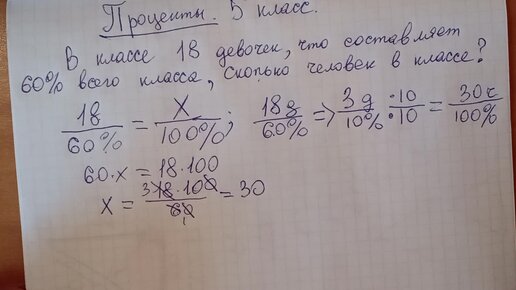 Проценты. 5 класс.
В классе 18 девочек, что составляет
60% всего класса, Сколько человек в классе?
18/60% = x/100%; 18д/60% => 3д/10% ·10/·10 = 30ч/100%
60·x = 18·100
x = 18·100/60 = 30
3
1